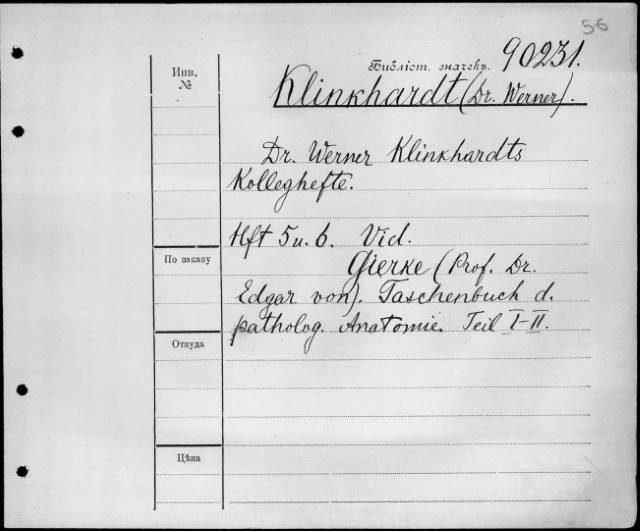 56
Библіот. значекъ. 90231.
Инв.
№
Klinkhardt (Dr. Werner).
Dr. Werner Klinkhardts
Kolleghefte.
Hft 5 u. 6. Vid.
Gierke (Prof. Dr.
Edgar von). Taschenbuch d.
patholog. Anatomie. Teil I-II.
По заказу
Откуда
Цѣна